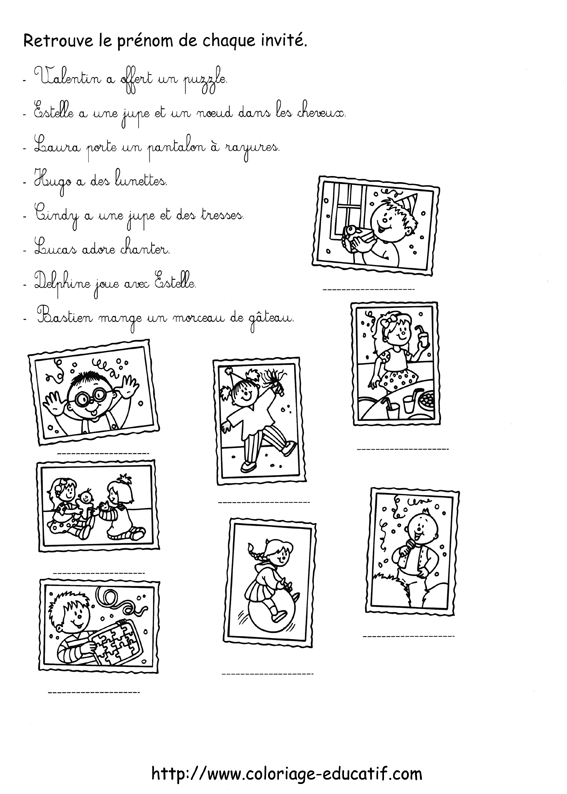 Retrouve le prénom de chaque invité.
- Valentin a offert un puzzle.
- Estelle a une jupe et un nœud dans les cheveux.
- Laura porte un pantalon à rayures.
- Hugo a des lunettes.
- Cindy a une jupe et des tresses.
- Lucas adore chanter.
- Delphine joue avec Estelle.
- Bastien mange un morceau de gâteau.
http://www.coloriage-educatif.com